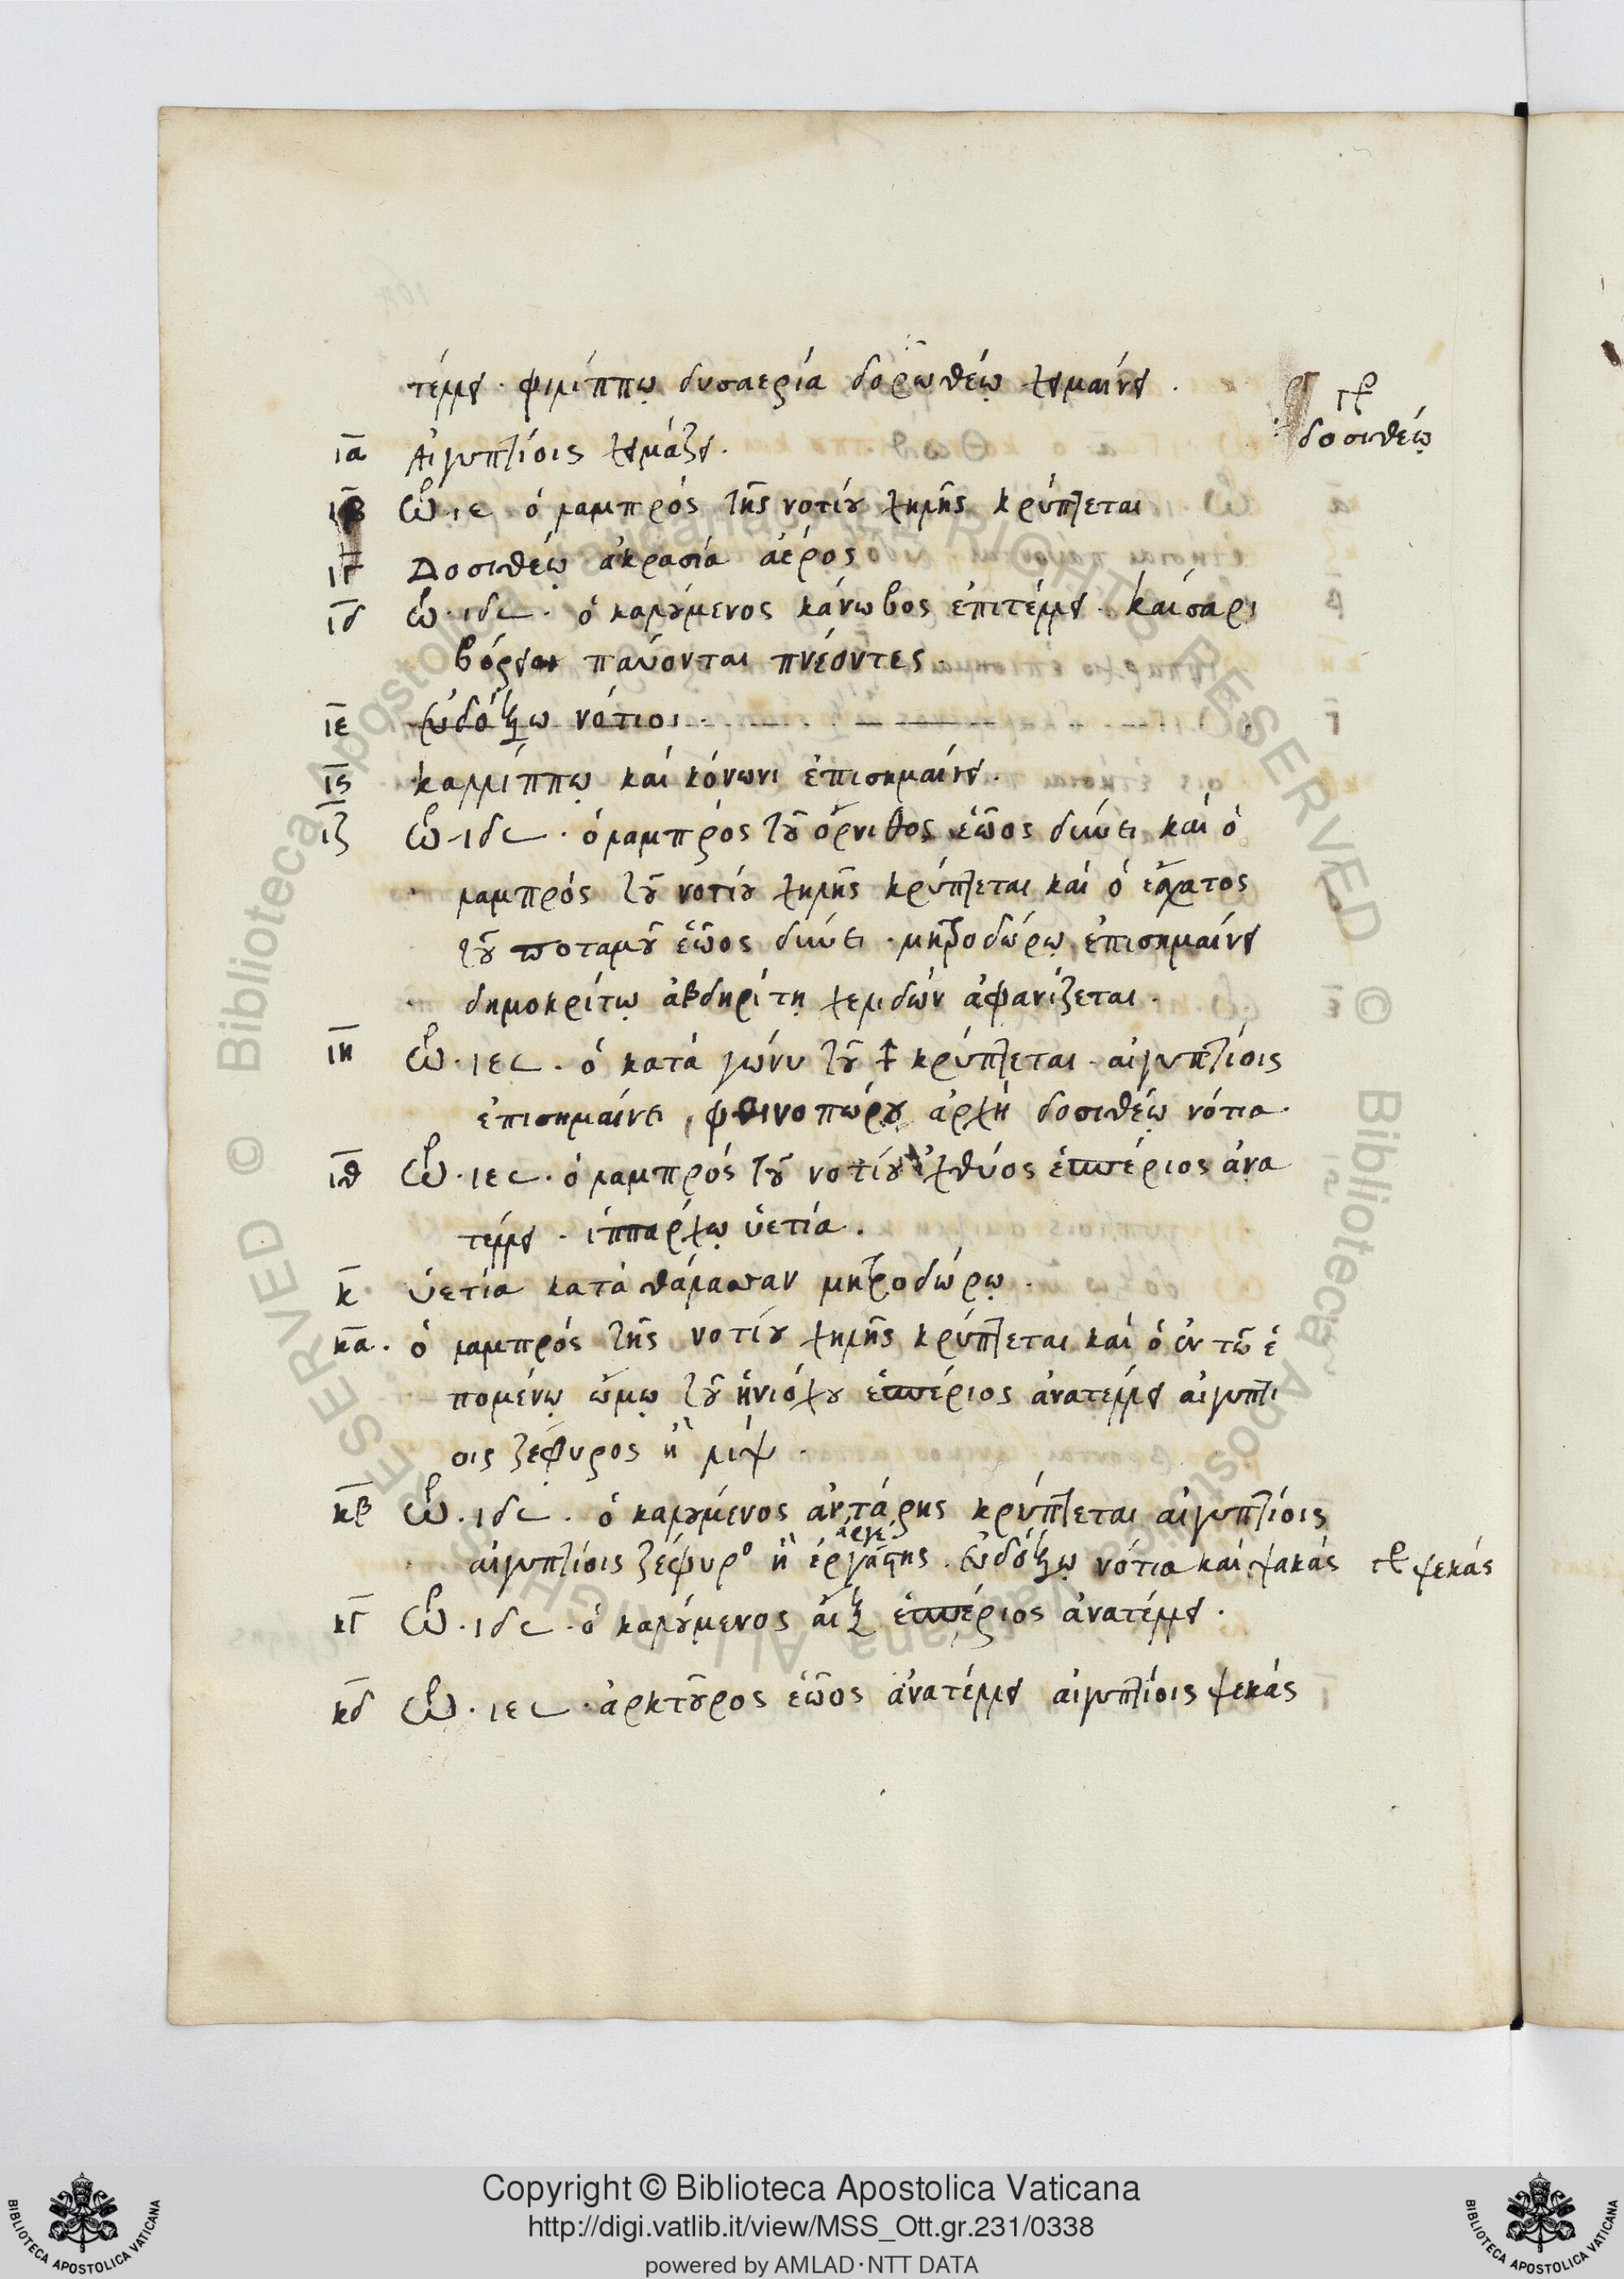 τέλλει· φιλίππῳ δυσαερία δορωθέῳ χειμαίνει.
γρ
δοσιθέῳ
ια Αἰγυπτίοις χειμάζει.
ιβ ὡρ. ιε ὁ λαμπρός τῆς νοτίου χηλῆς κρύπτεται
ιγ Δοσιθέῳ ἀκρασία ἀέρος
ιδ ὡρ. ιδ ∠. ὁ καλούμενος κάνωβος ἐπιτέλλει. καίσαρι
βόρειοι παύονται πνέοντες.
ιε εὐδόξῳ νότιοι
ις καλλίππῳ καί κόνωνι ἐπισημαίνει.
ιζ ὡρ. ιδ ∠. ὁ λαμπρός τοῦ ὄρνιθος ἑῶος δύνει καί ὁ
λαμπρός τοῦ νοτίου χηλῆς κρύπτεται καί ὁ ἔσχατος
τοῦ ποταμοῦ ἑῶος δύνει. μητροδώρῳ ἐπισημαίνει
δημοκρίτῳ ἀβδηρίτῃ χελιδών ἀφανίζεται.
ιη ὡρ. ιε ∠. ὁ κατά γόνυ τοῦ ♐ κρύπτεται. αἰγυπτίοις
ἐπισημαίνει, φθινοπώρου ἀρχή δοσιθέῳ νότια.
ιθ ὡρ. ιε ∠. ὁ λαμπρός τοῦ νοτίου ἰχθύος ἑσπέριος ἀνα
τέλλει. ἱππάρχῳ ὑετία.
κ ὑετία κατά θάλασσαν μητροδώρῳ.
κα. ὁ λαμπρός τῆς νοτίου χηλῆς κρύπτεται καί ὁ ἐν τῷ ἑ
πομένῳ ὤμῳ τοῦ ἡνιόχου ἑσπέριος ἀνατέλλει αἰγυπτί
οις ζέφυρος ἢ λίψ.
κβ ὡρ. ιδ ∠. ὁ καλούμενος ἀντάρης κρύπτεται αἰγυπτίοις
αἰγυπτίοις ζέφυρο ἢ ἐργάτης. εὐδόξῳ νότια καί ψακάς γρ ψεκάς
κγ ὡρ. ιδ ∠. ὁ καλούμενος αἴξ ἑσπέριος ἀνατέλλει.
κδ ὡρ. ιε ∠. ἀρκτοῦρος ἑῶος ἀνατέλλει αἰγυπτίοις ψεκάς
Copyright © Biblioteca Apostolica Vaticana
http://digi.vatlib.it/view/MSS_Ott.gr.231/0338
powered by AMLAD·NTT DATA
BIBLIOTECA APOSTOLICA VATICANA
BIBLIOTECA APOSTOLICA VATICANA